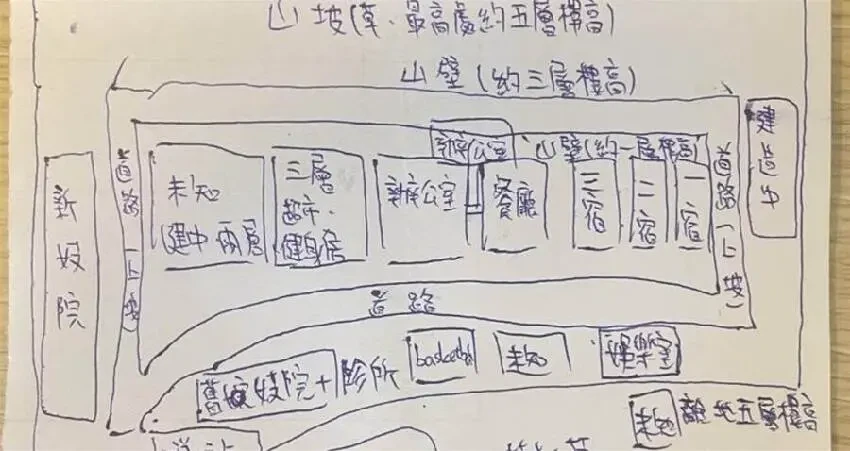 山坡(草、最高處約五層樓高)
山壁(約三層樓高)
建造中
道路(上坡)
辦公室
山壁(約一層樓高)
道路(上坡)
新妓院
未知
建中 兩層
三層
超市、
健身房
辦公室
餐廳
三宿
二宿
一宿
道路
舊妓院+診所
未知
娛樂室
未知
離地五層樓高